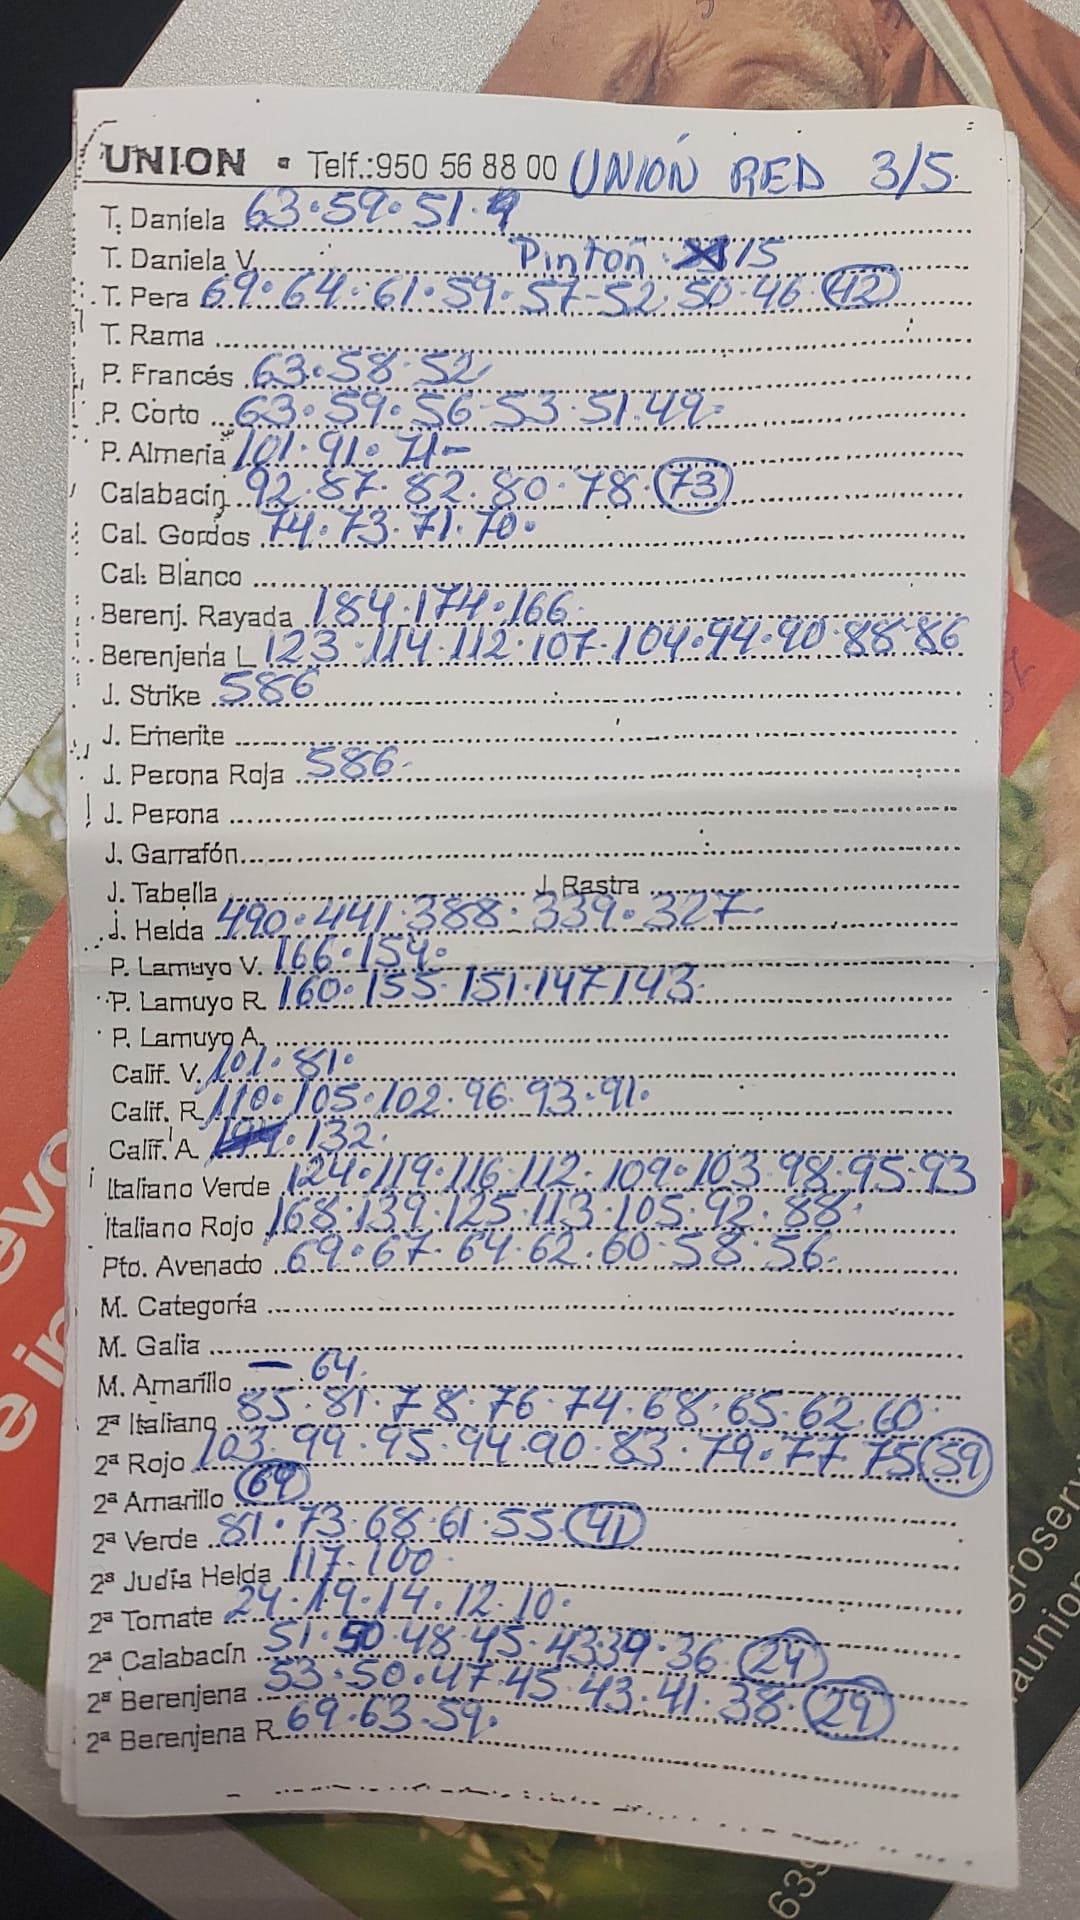 UNION • Telf.:950 56 88 00 UNIÓN RED 3/5.
T. Daniela 63.59.51.
T. Daniela V. Pinton 15
T. Pera 69.64.61.59.57-52 50.46 42
T. Rama
P. Francés 63.58.52
P. Corto 63.59.56-53.51.49.
P. Almeria 101.91.71-
Calabacin 92.87.82.80.78.73
Cal. Gordos 74.73.71.70.
Cal. Blanco
Berenj. Rayada 184.174.166.
Berenjena L 123.114.112.107.104.94.90.88-86
J. Strike 586
J. Emerite
J. Perona Roja 586.
J. Perona
J. Garrafón
J. Tabella J. Rastra
J. Helda 490.441.388.339.327.
P. Lamuyo V. 166.154.
P. Lamuyo R. 160.155.151.147.143.
P. Lamuyo A.
Calif. V. 101.81.
Calif. R. 110.105.102.96.93.91.
Calif. A. 132.
Italiano Verde 124.119.116.112.109.103.98.95.93
Italiano Rojo 168.139.125.113.105.92.88.
Pto. Avenado 69.67.64.62.60.58.56.
M. Categoría
M. Galia
M. Amarillo — 64.
2ª Italiano 85.81.78.76.74.68.65.62.60.
2ª Rojo 103.99.95.94.90.83.79.77.75 59
2ª Amarillo 69
2ª Verde 81.73.68.61.55 41
2ª Judía Helda 117.100.
2ª Tomate 24.19.14.12.10.
2ª Calabacín 51.50.48.45.43.39.36. 24
2ª Berenjena 53.50.47.45.43.41.38. 29
2ª Berenjena R. 69.63.59.